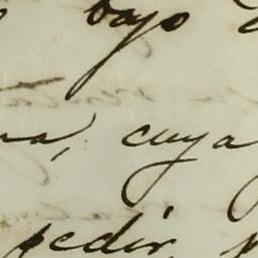 bajo
na, cuya
pedir,